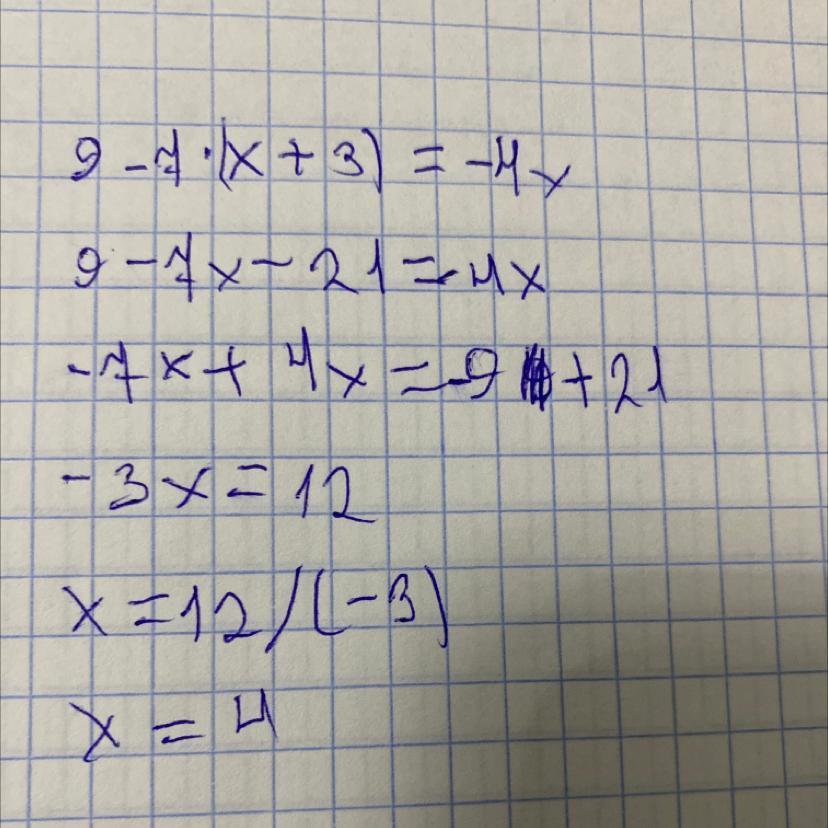 9 - 7 · (x + 3) = -4x
9 - 7x - 21 = -4x
-7x + 4x = -9 + 21
-3x = 12
x = 12 / (-3)
x = 4